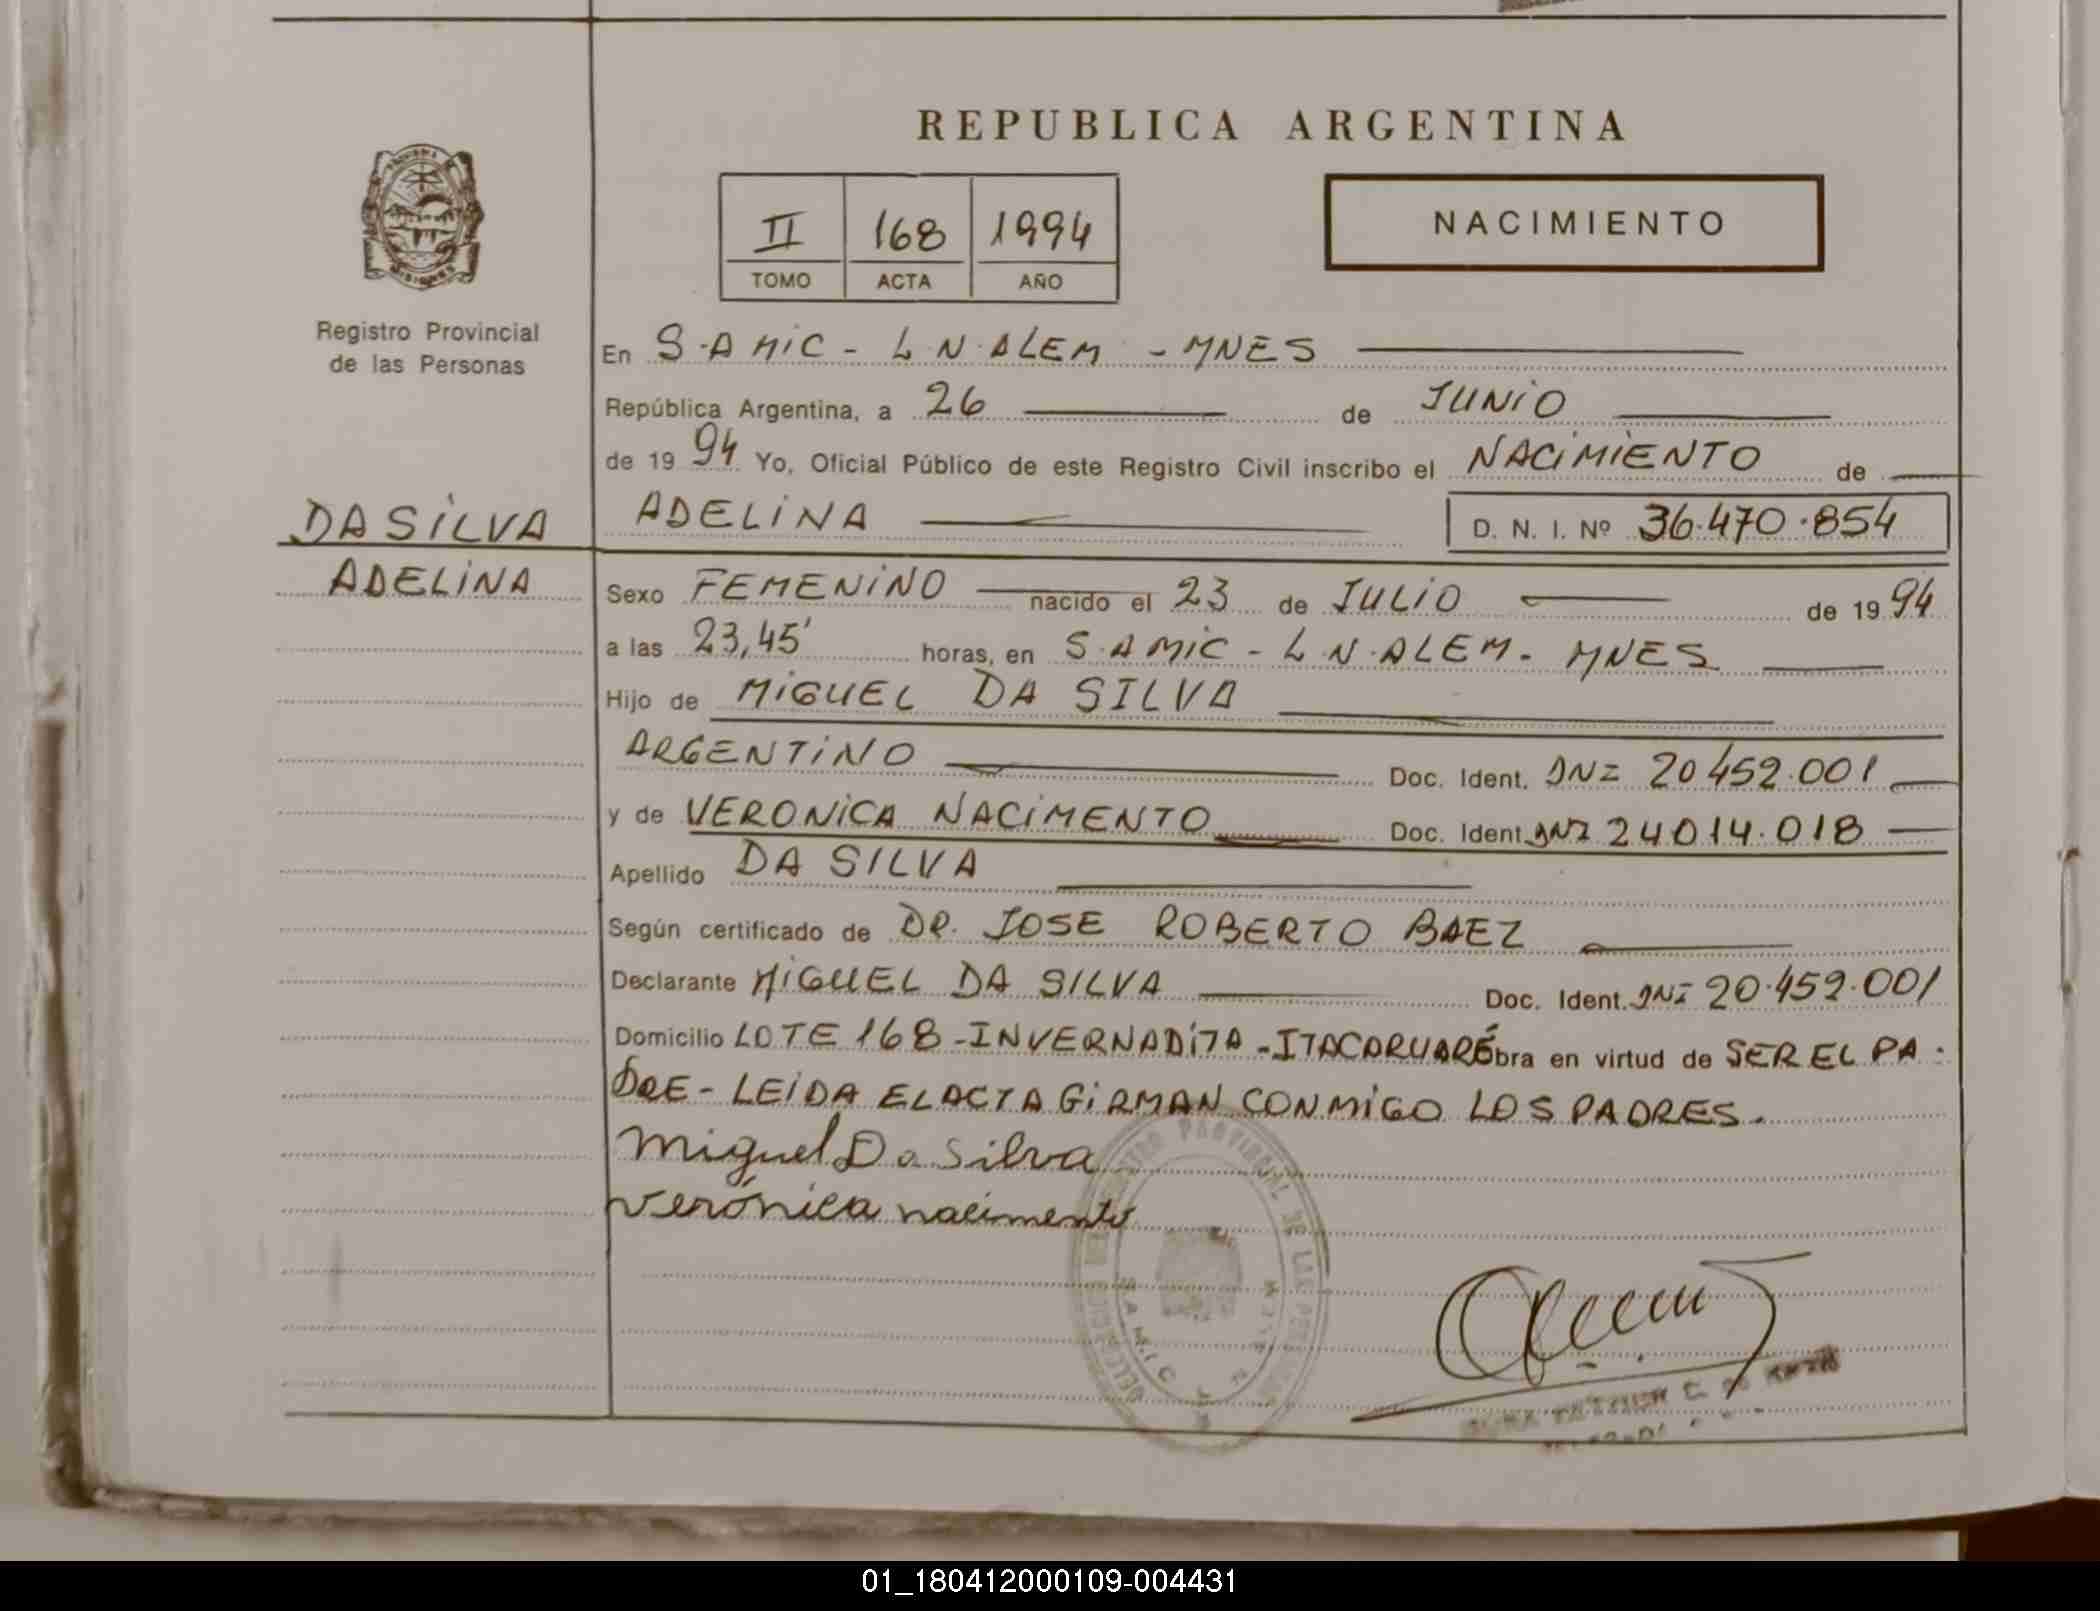 REPUBLICA ARGENTINA
II 168 1994
TOMO ACTA AÑO
NACIMIENTO
Registro Provincial
de las Personas
En S.AMIC - L.N.ALEM - MNES
República Argentina, a 26 de JUNIO
de 1994 Yo, Oficial Público de este Registro Civil inscribo el NACIMIENTO de
DA SILVA
ADELINA
ADELINA D. N. I. Nº 36.470.854
Sexo FEMENINO nacido el 23 de JULIO de 1994
a las 23,45' horas, en S.AMIC - L.N.ALEM - MNES
Hijo de MIGUEL DA SILVA
ARGENTINO Doc. Ident. DNI 20.452.001
y de VERONICA NACIMENTO Doc. Ident. DNI 24.014.018
Apellido DA SILVA
Según certificado de DR. JOSE ROBERTO BAEZ
Declarante MIGUEL DA SILVA Doc. Ident. DNI 20.452.001
Domicilio LOTE 168 - INVERNADITA - ITACARUARÉ Obra en virtud de SER EL PA-
DRE - LEIDA EL ACTA GIRMAN CONMIGO LOS PADRES.
Miguel Da Silva
Verónica nacimento
01_180412000109-004431